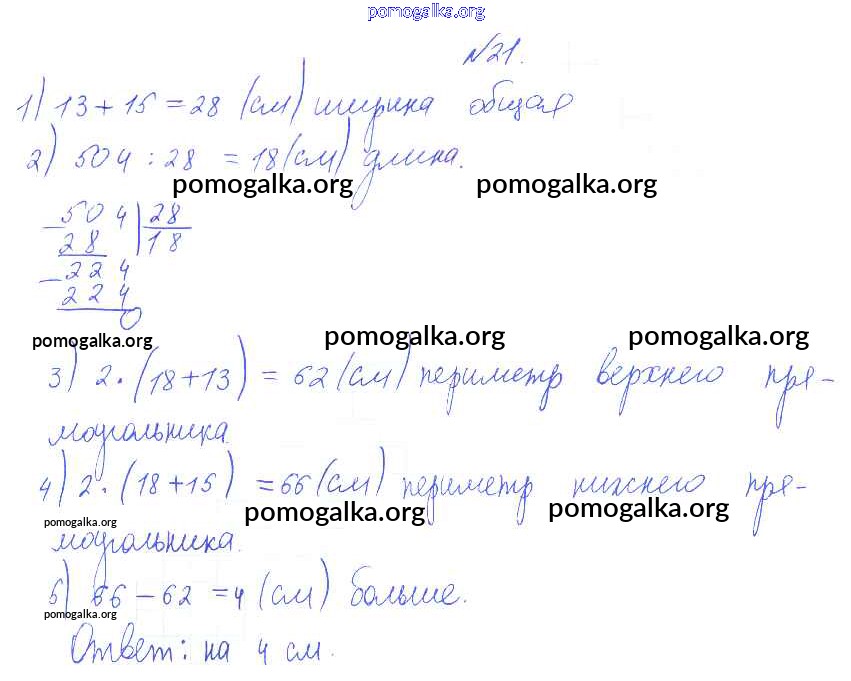 pomogalka.org
№21.
1) 13 + 15 = 28 (см) ширина общая
2) 504 : 28 = 18 (см) длина.
pomogalka.org pomogalka.org
- 504 | 28
28 | 18
- 224
224
0
pomogalka.org pomogalka.org pomogalka.org
3) 2 · (18 + 13) = 62 (см) периметр верхнего пря-
моугольника.
4) 2 · (18 + 15) = 66 (см) периметр нижнего пря-
pomogalka.org pomogalka.org pomogalka.org
моугольника.
5) 66 - 62 = 4 (см) больше.
pomogalka.org
Ответ: на 4 см.